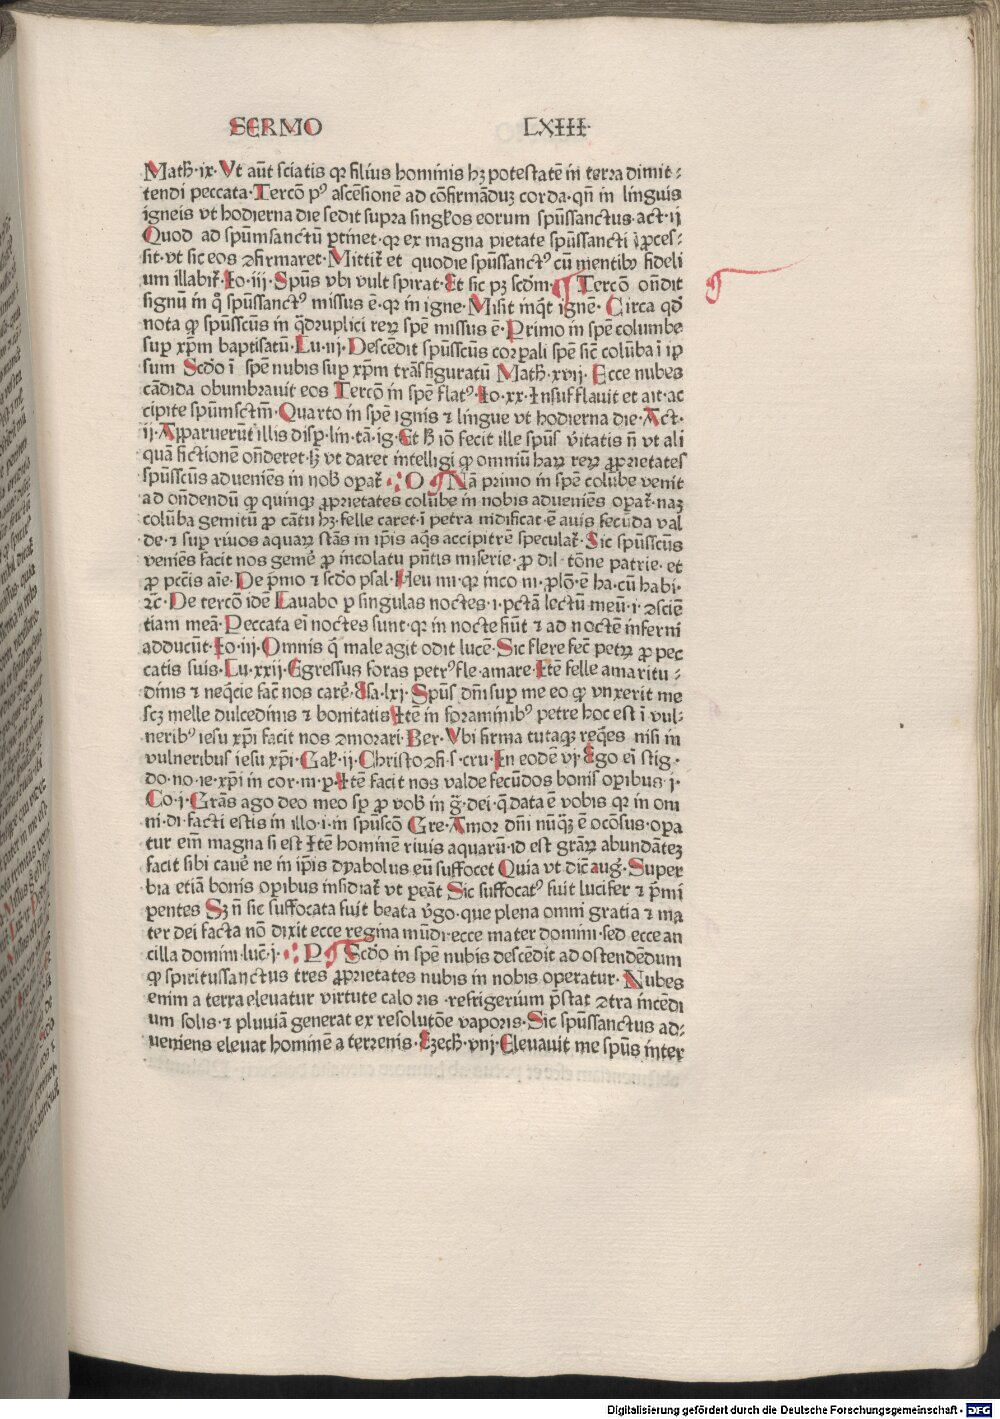 SERMO LXIII·
Math̄·ix·Vt aūt sciatis qꝛ filius hominis hꝫ potestatē in terra dimit⸗
tendi peccata·Tercō pꝰ ascēsionē ad cōfirmāduꝫ corda·qn̄ in linguis
igneis vt hodierna die sedit supra singłos eorum spūssanctus·act·ij
Quod ad spūmsanctū ꝑtinet·qꝛ ex magna pietate spūssancti ī ꝓces⸗
sit·vt sic eos ꝯfirmaret·Mittit᷑ et quodie spūssanctꝰ cū mentibꝰ fideli
um illabit᷑·Io·iij·Spūs vbi vult spirat·Et sic pꝫ scd̄m·¶Tercō on̄dit
signū in q̄ spūssanctꝰ missus ē·qꝛ in igne·Misit inq̇t ignē·Circa qd̄
nota ꝙ spūsscūs in q̄druplici reꝝ spē missus ē·Primo in spē columbe
suꝑ xp̄m baptisatū·Lu·iij·Descēdit spūsscūs corꝑali spē sic̄ colūba ī ip̄
sum Scd̄o ī spē nubis suꝑ xp̄m trāsfiguratū Math̄·xvij·Ecce nubes
cādida obumbrauit eos Tercō in spē flatꝰ·Io·xx·Insufflauit et ait·ac
cipite spūmsctm̄·Quarto in spē ignis ⁊ lingue vt hodierna die·Act·
ij·Apparuerūt illis disꝑ·lin·tā·ig·Et ħ iō fecit ille spūs v̄itatis n̄ vt ali
quā fictionē on̄deret·ħ vt daret intelligi ꝙ omniū haꝝ reꝝ ꝓprietates
spūsscūs adueniēs in nob̄ oꝑat᷑·O ¶Nā primo in spē colūbe venit
ad on̄dendū ꝙ quinqꝫ ꝓprietates colūbe in nobis adueniēs oꝑat᷑·naꝫ
colūba gemitū ꝓ cātu hꝫ·felle caret·ī petra nidificat·ē auis fecūda val
de·⁊ suꝑ riuos aquaꝝ stās in ip̄is aq̄s accipitrē speculat᷑·Sic spūsscūs
veniēs facit nos gemē ꝓ incolatu pn̄tis miserie·ꝓ dil·tōne patrie·et
ꝓ pctīs aīe·De pīmo ⁊ scd̄o psal·Heu mi·qꝛ inco m·ꝓlō·ē ha·cū habi·
⁊c̄·De tercō idē Lauabo ꝑ singulas noctes·i·pctā lectū meū·i·ꝯsciē
tiam meā·Peccata eī noctes sunt·qꝛ in nocte fiūt ⁊ ad noctē inferni
adducūt·Io·iij·Omnis q̄ male agit odit lucē·Sic flere fec̄ petꝝ ꝓ pec
catis suis·Lu·xxij·Egressus foras petrꝰ fle·amare·Itē felle amaritu⸗
dinis ⁊ neq̇cie fac̄ nos carē·Isa·lxj·Spūs dn̄i suꝑ me eo ꝙ vnxerit me
scꝫ melle dulcedinis ⁊ bonitatis Itē in foraminibꝰ petre hoc est ī vul⸗
neribꝰ iesu xp̄i facit nos ꝯmorari·Ber·Vbi firma tutaqꝫ req̇es nisi in
vulneribus iesu xp̄i·Gal·ij·Christo ꝯfi·s·cru·In eodē vj·Ego eī stig·
do·no·ie·xp̄i in cor·m·p·Itē facit nos valde fecūdos bonis oꝑibus·j·
Co·j·Gras̄ ago deo meo sꝑ ꝓ vob̄ in gr̄a·dei·q̄ data ē vobis qꝛ in om
ni·di·facti estis in illo·i·in spūscō Gre·Amor dn̄i nūq̄ ē ocōsus·oꝑa
tur em̄ magna si est Itē hominē riuis aquarū·id est grāꝝ abundāteꝫ
facit sibi cauē ne in ip̄is dyabolus eū suffocet Quia vt dic̄ auḡ·Super
bia etiā bonis oꝑibus insidiat᷑ vt ꝑeāt Sic suffocatꝰ fuit lucifer ⁊ pīmi
ꝑentes Sꝫ n̄ sic suffocata fuit beata v̄go·que plena omni gratia ⁊ ma
ter dei facta nō dixit ecce regina mūdi·ecce mater domini·sed ecce an
cilla domini·luc̄·j·P ¶Scd̄o in spē nubis descēdit ad ostendēdum
ꝙ spiritussanctus tres ꝓprietates nubis in nobis operatur·Nubes
enim a terra eleuatur virtute caloris·refrigerium pr̄stat ꝯtra incēdi
um solis·⁊ pluuiā generat ex resolutōe vaporis·Sic spūssanctus ad⸗
ueniens eleuat hominē a terrenis·Ezech̄·viij·Eleuauit me spūs inter
Digitalisierung gefördert durch die Deutsche Forschungsgemeinschaft - DFG